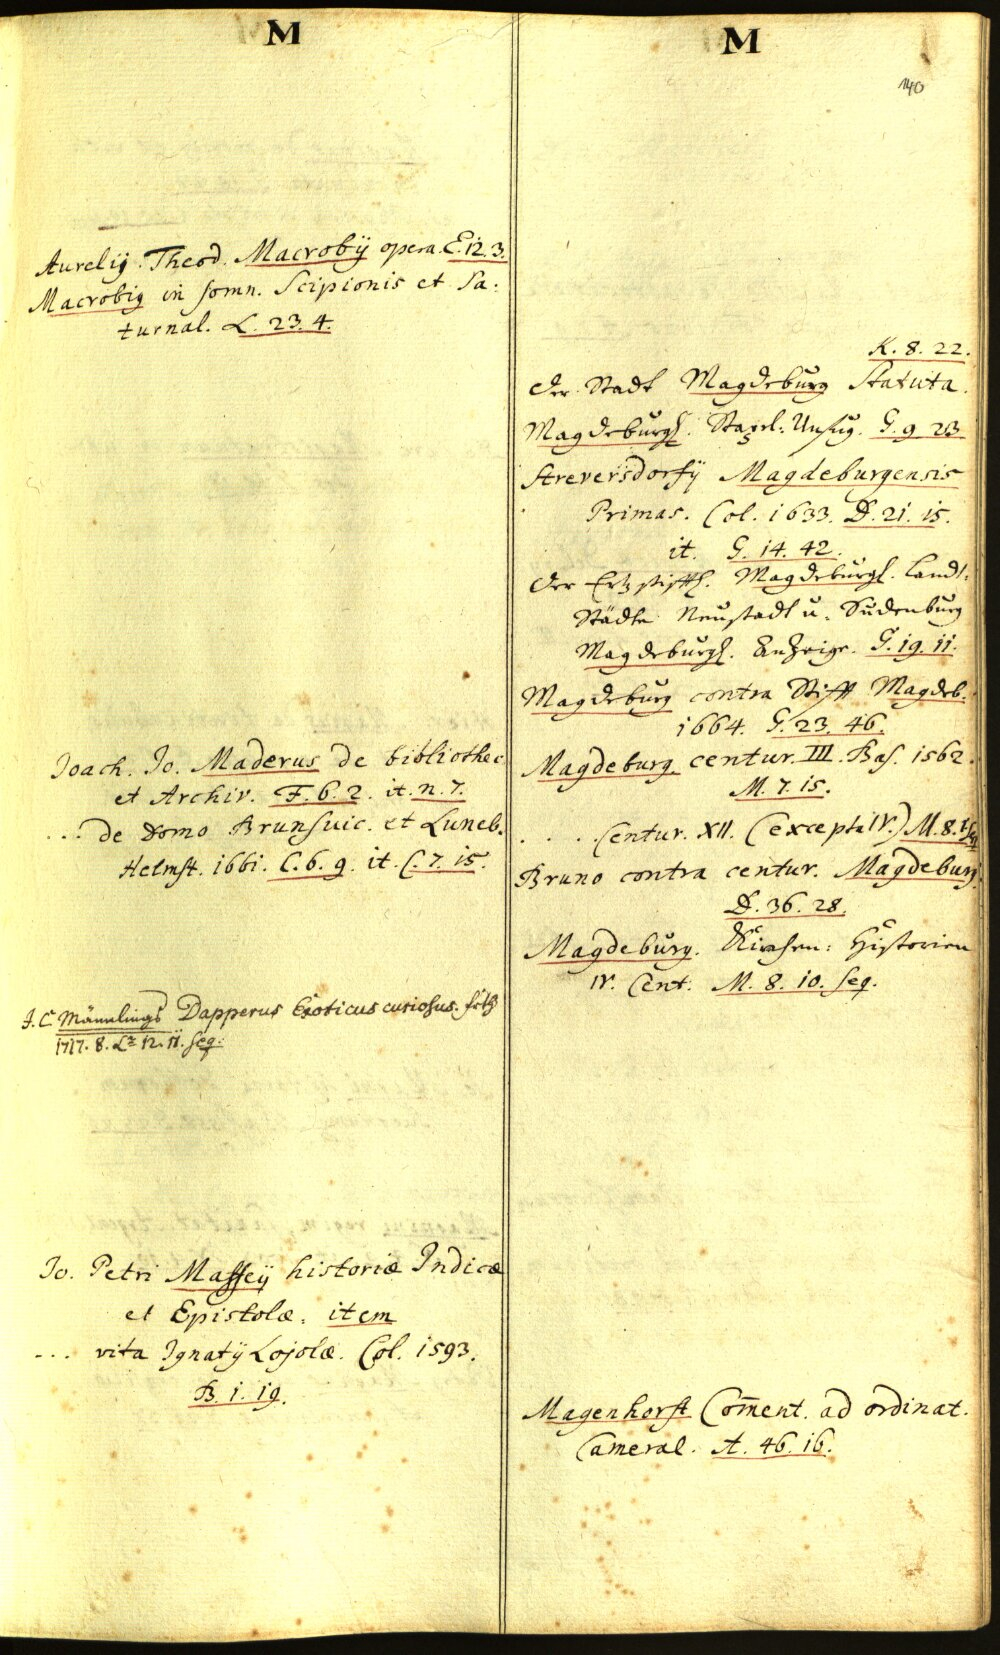 M
Aurelij. Theod. Macrobij opera. E. 12. 3.
Macrobig in somn. Scipionis et Sa:
turnal. L. 23. 4.
Joach. Jo. Maderus de bibliothec.
et Archiv. F. 6. 2. it. n. 7.
... de Domo Brunsuic. et Luneb.
Helmst. 1661. C. 6. 9. it. C. 7. 15.
J. C. Männlings Dapperus Exoticus curiosus.
1717. 8. 12. 11. seq:
Jo. Petri Maffeij historiæ Indicæ
et Epistolæ. item
... vita Ignatij Lojolæ. Col. 1593.
B. 1. 19.
M
140
K. 8. 22.
der Stadt Magdeburg Statuta.
Magdeburgl. Stapel-Unfug. G. 9. 23
Streversdorfij Magdeburgensis
Primas. Col. 1633. D. 21. 15.
it. G. 14. 42.
der Ertzstifftl. Magdeburgl. Landt-
Städte Neustadt u. Sudenburg
Magdeburgl. Anzeige. G. 19. 11.
Magdeburg contra Stifft Magdeb.
1664. G. 23. 46.
Magdeburg. centur. III. Bas. 1562.
M. 7. 15.
.... Centur. XII. (excepta IV.) M. 8. 1 seq
Bruno contra centur. Magdeburg.
D. 36. 28.
Magdeburg. Kirchen: Historien
IV. Cent. M. 8. 10. seq.
Magenhorst Com̅ent. ad ordinat.
Cameral. A. 46. 16.